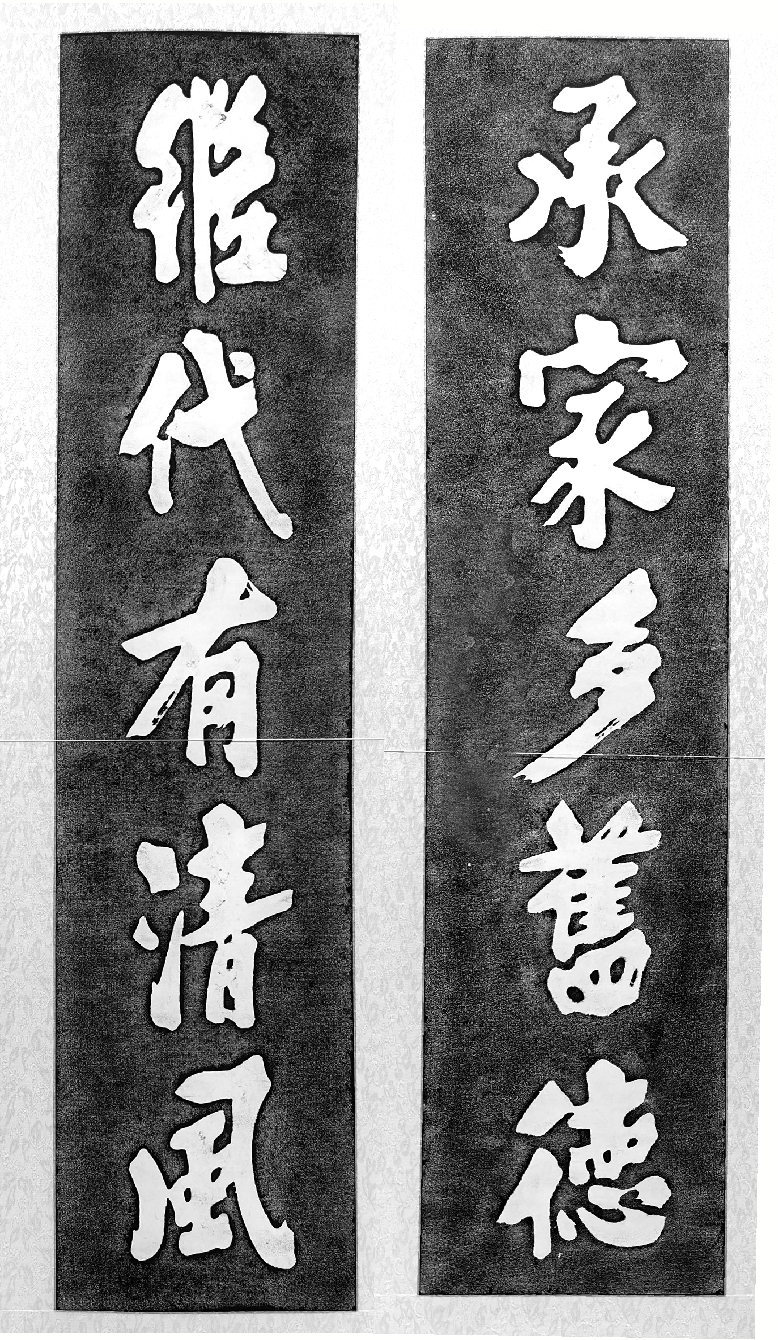 承家多舊德
継代有清風